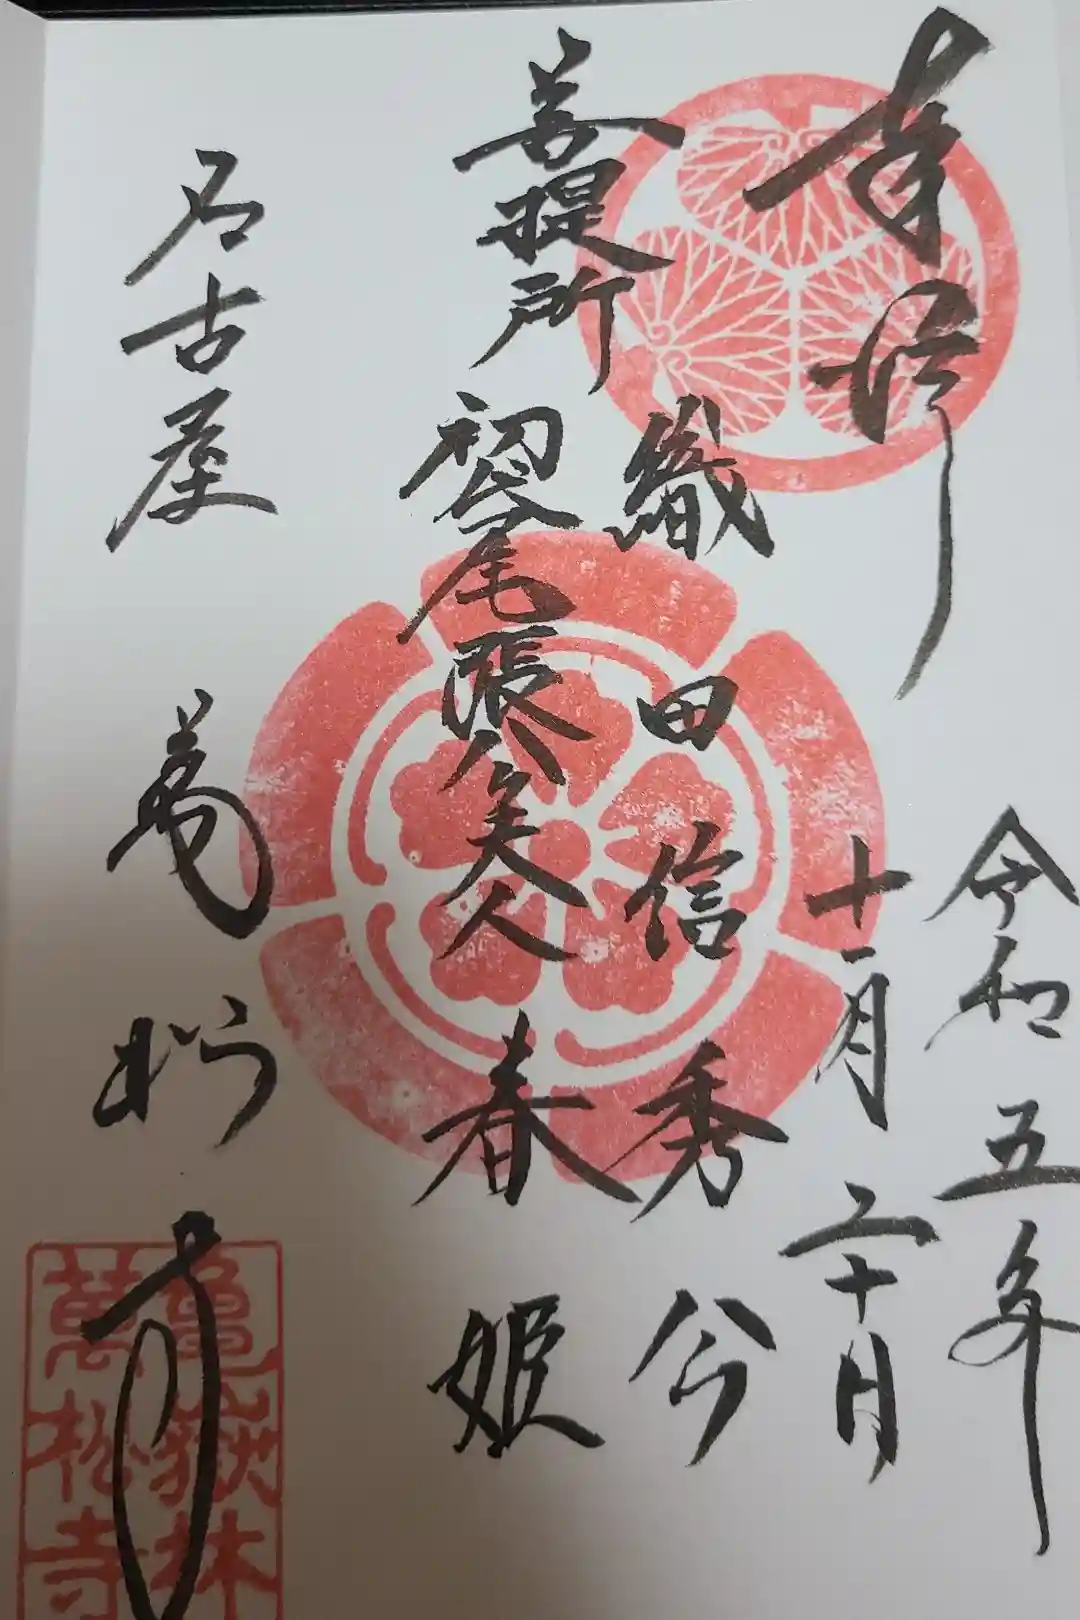 奉拝
令和五年
十一月二十日
織田信秀公
菩提所
初代尾張公夫人
春姫
名古屋
萬松寺
亀嶽林
萬松寺